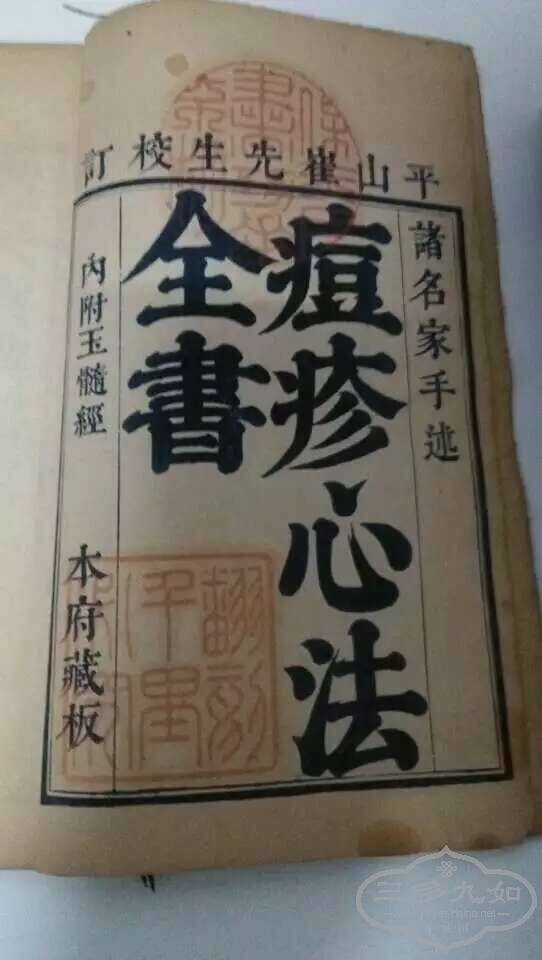 平山崔先生校訂
諸名家手述
痘疹心法
全書
內附玉髓經
本府藏板
翻刻
千里
三多九如